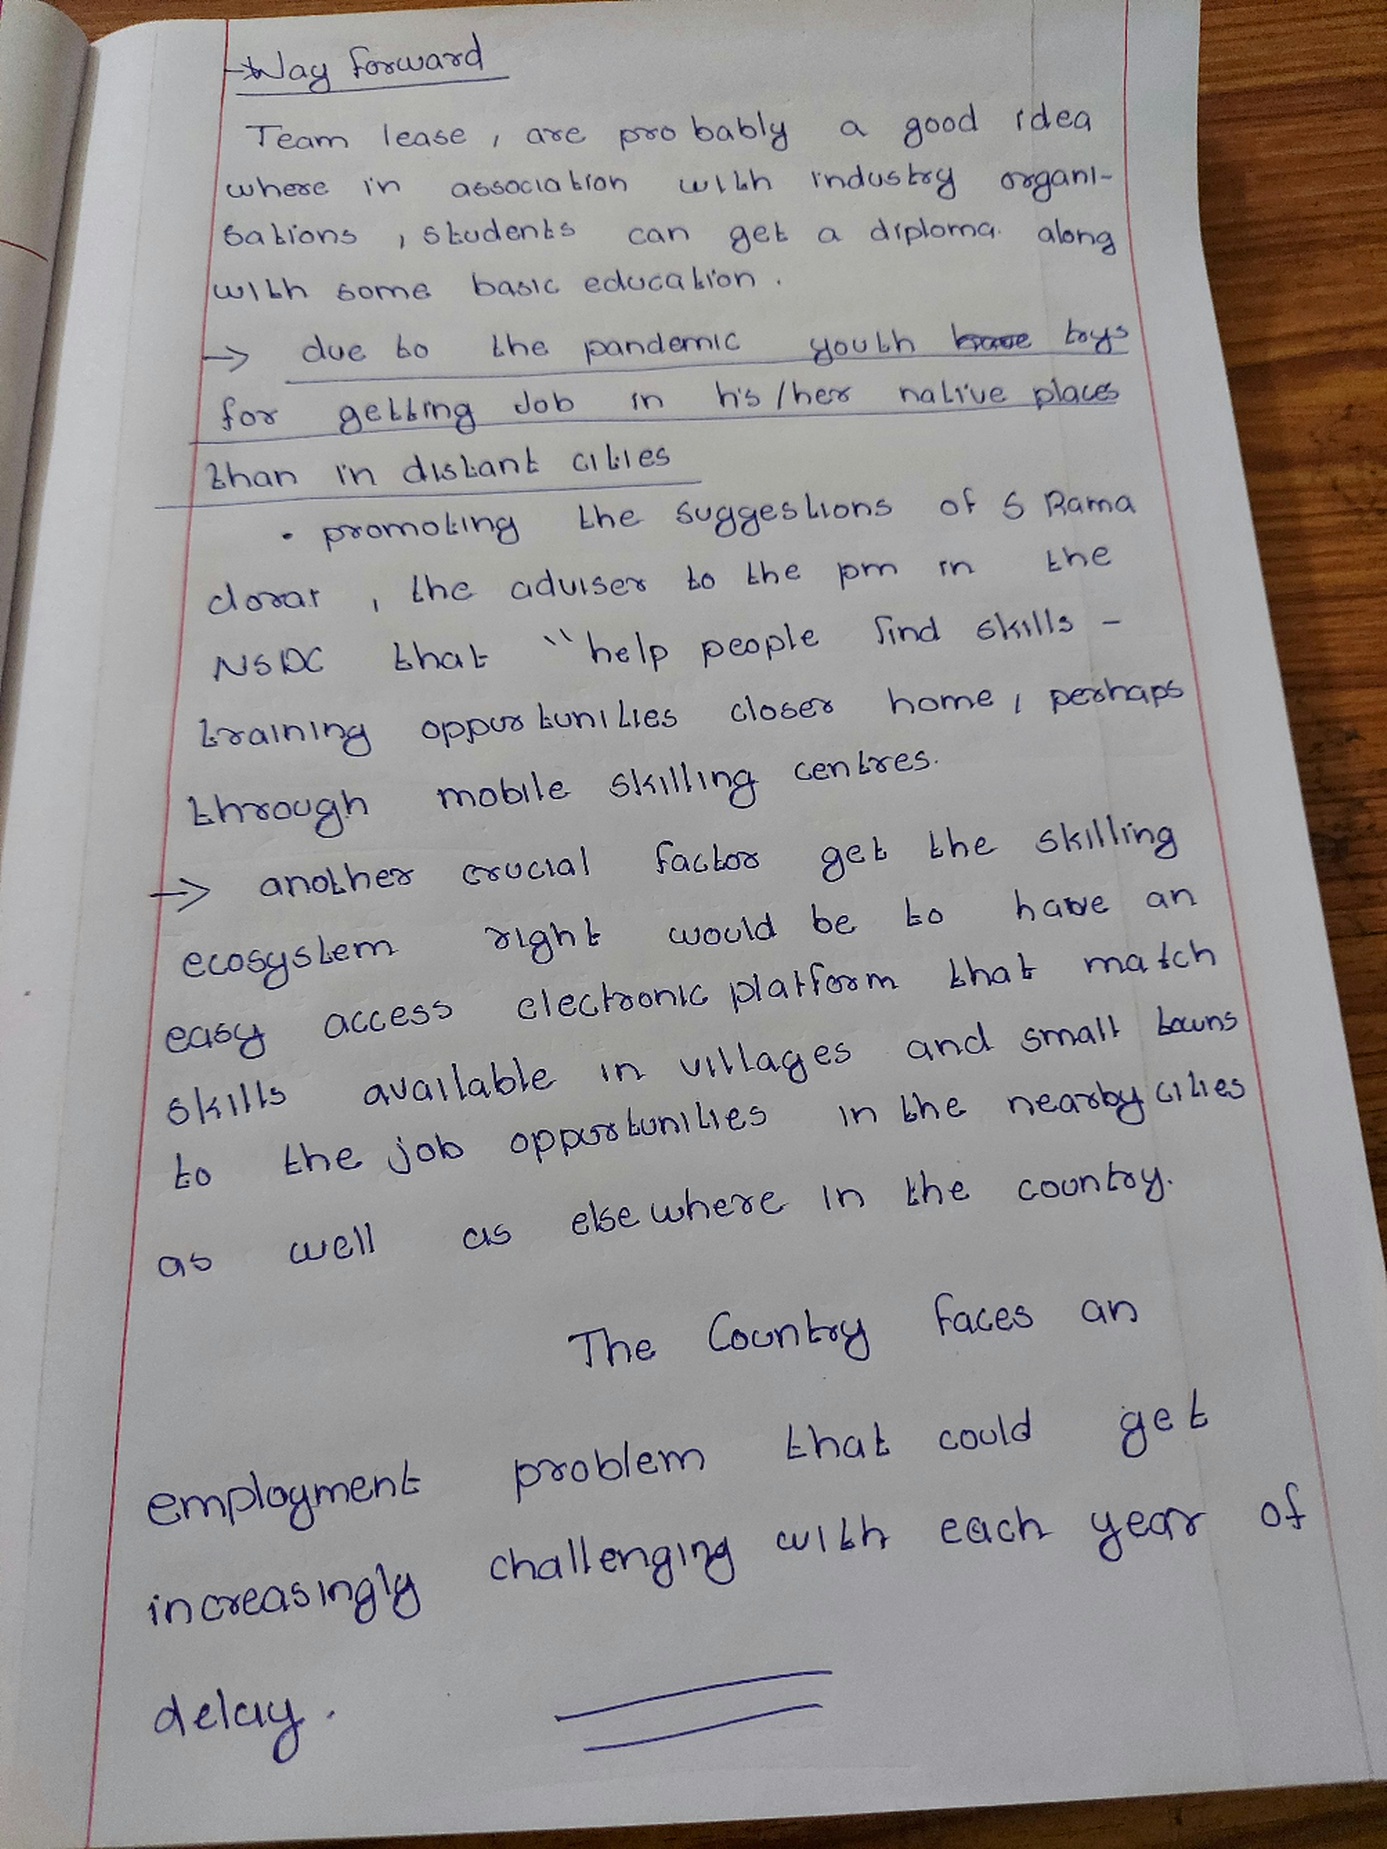 → Way forward
Team lease, are probably a good idea
where in association with industry organi-
sations, students can get a diploma along
with some basic education.
→ due to the pandemic youth trys
for getting Job in his/her native places
than in distant cities
• promoting the suggestions of S Rama
dorai, the adviser to the pm in the
NSDC that "help people find skills -
training opportunities closer home, perhaps
through mobile skilling centres.
→ another crucial factor get the skilling
ecosystem right would be to have an
easy access electronic platform that match
skills available in villages and small towns
to the job opportunities in the nearby cities
as well as elsewhere in the country.
The Country faces an
employment problem that could get
increasingly challenging with each year of
delay.